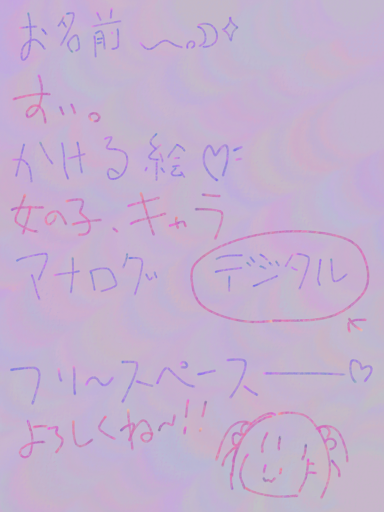 お名前 〜。☽✧
すい。
かける絵♡=
女の子、キャラ
アナログ デジタル
フリ〜スペース──♡
よろしくね〜!!